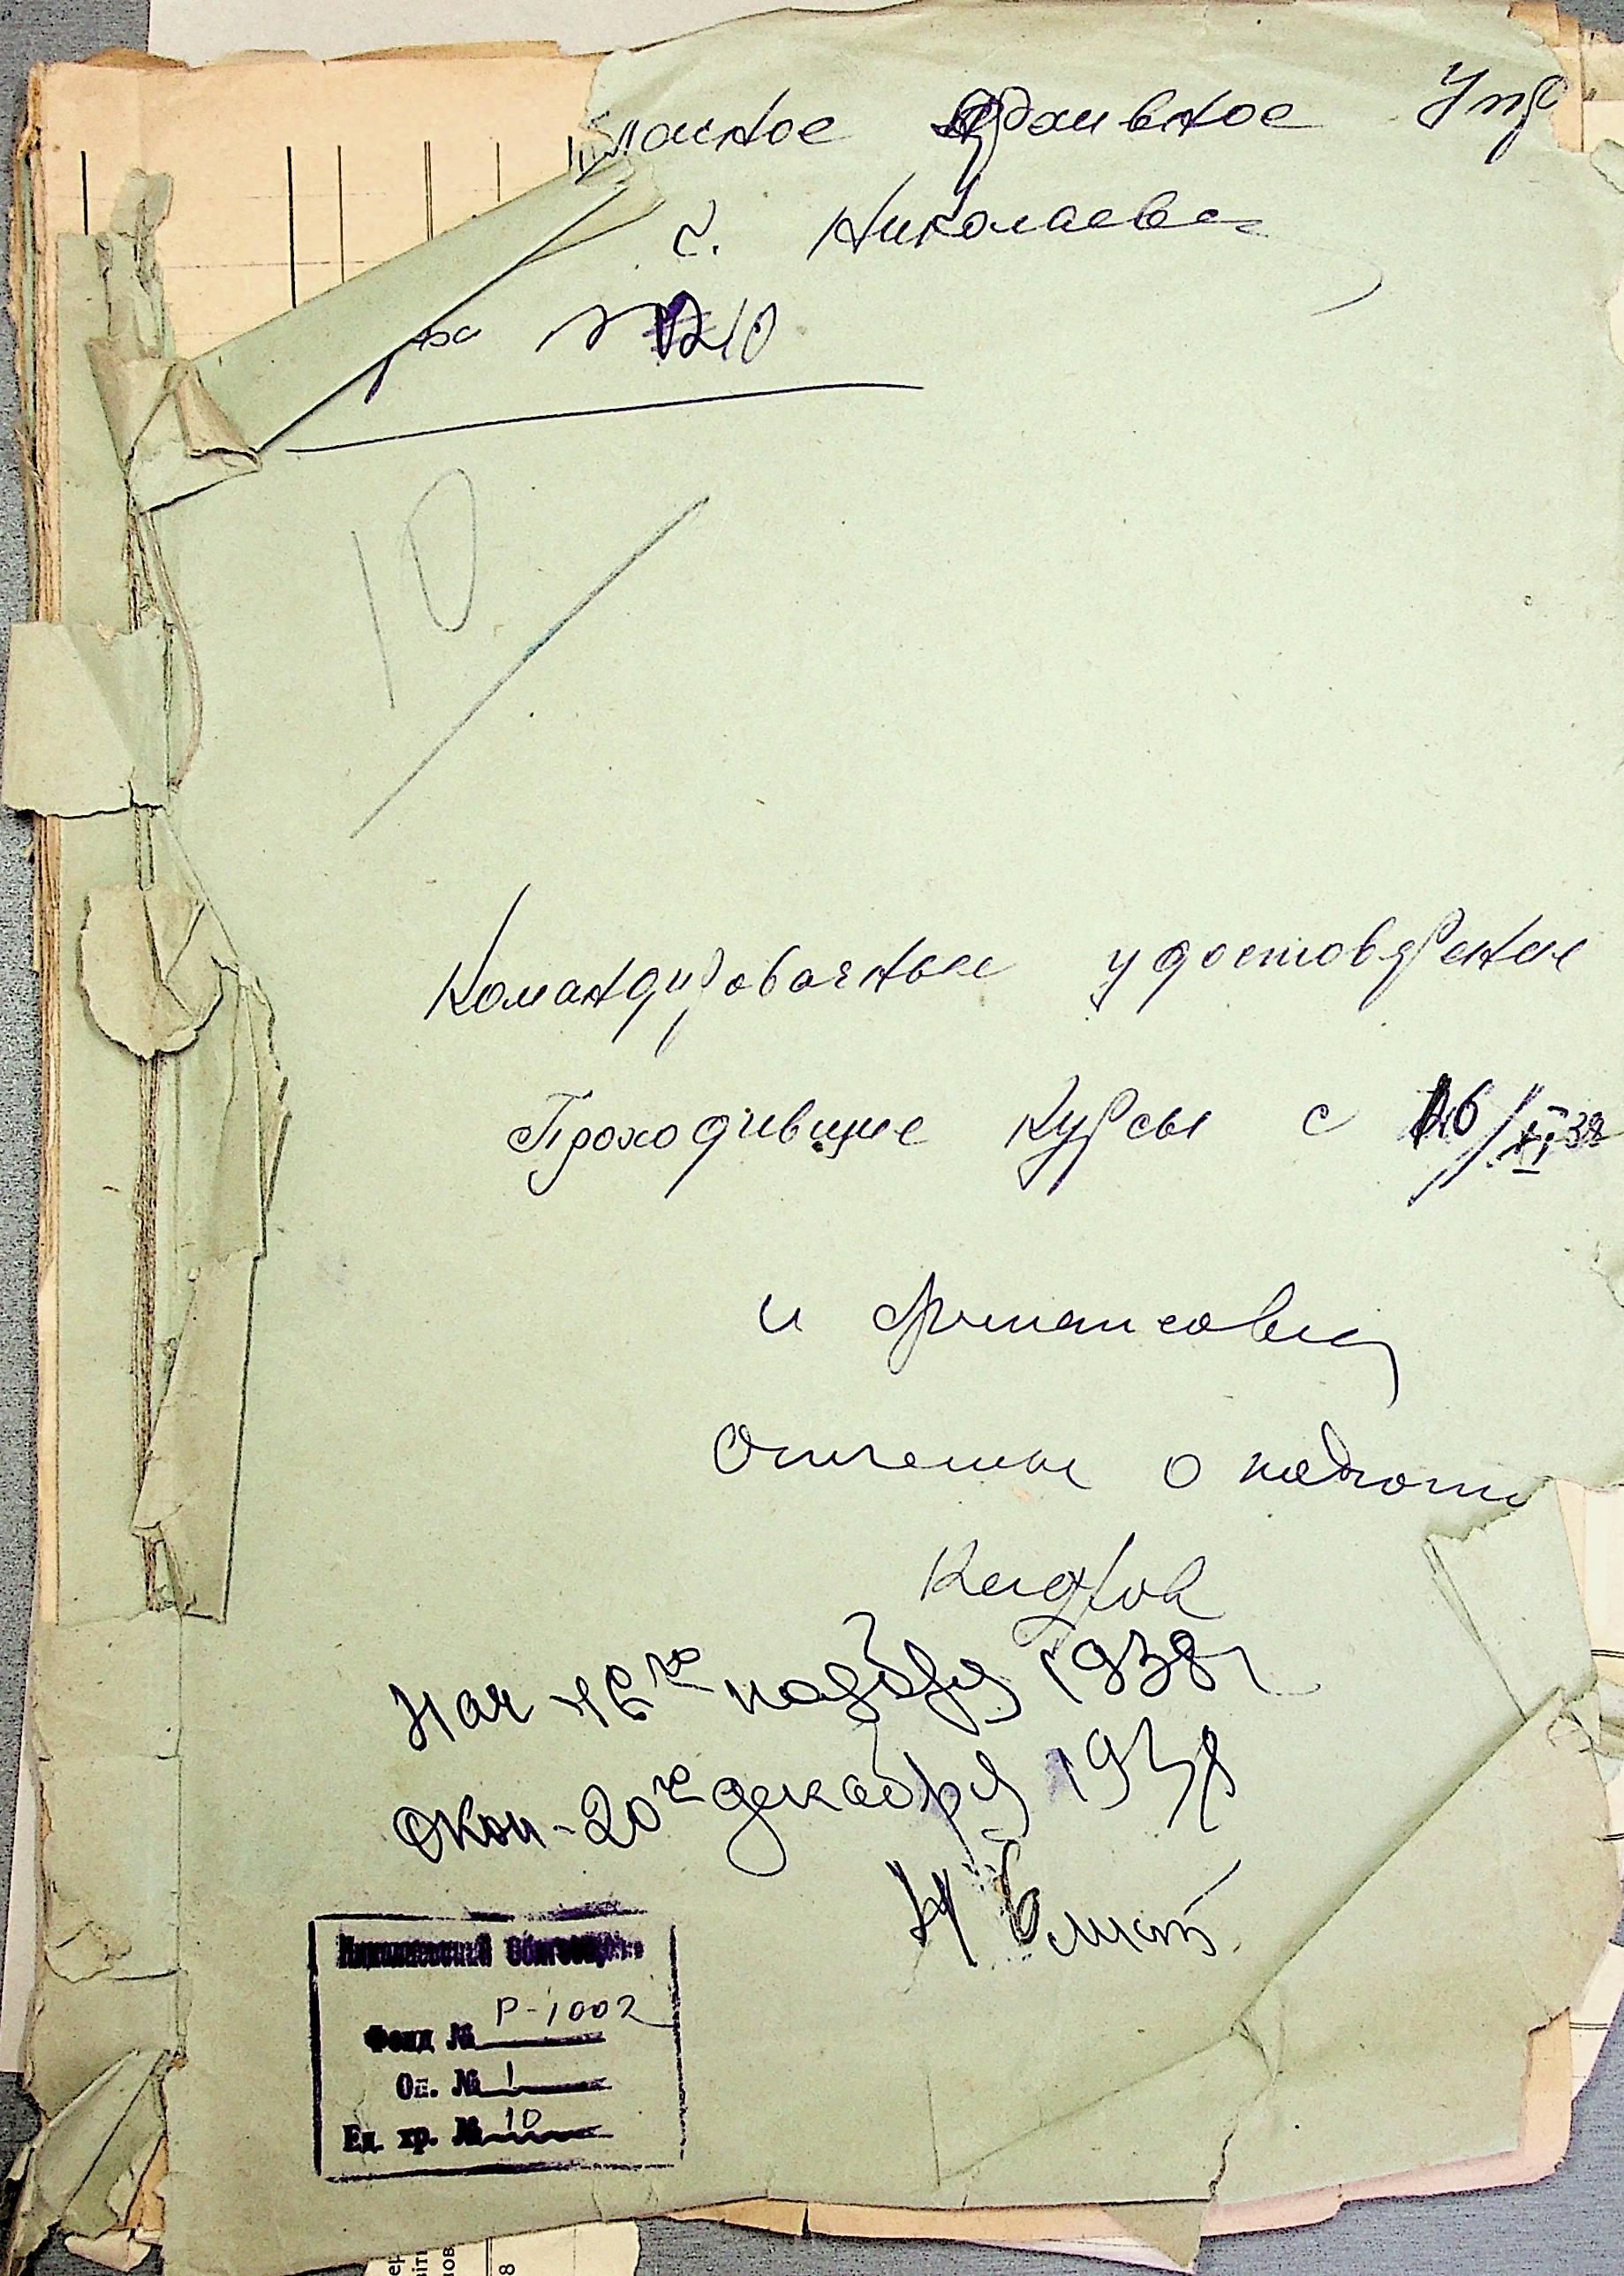 Архивное Упр
г. Николаева
№ 10
10
Командировачные удостоверение
Проходившие курсы с 16/XI-38
и финансовые
Отчеты о подгото
Кадров
Нач 16го ноября 1938г
Окон-20го декабря 1938
Николаевский Облгосархив
Р-1002
Фонд №
Оп. № 1
Ед. хр. № 10